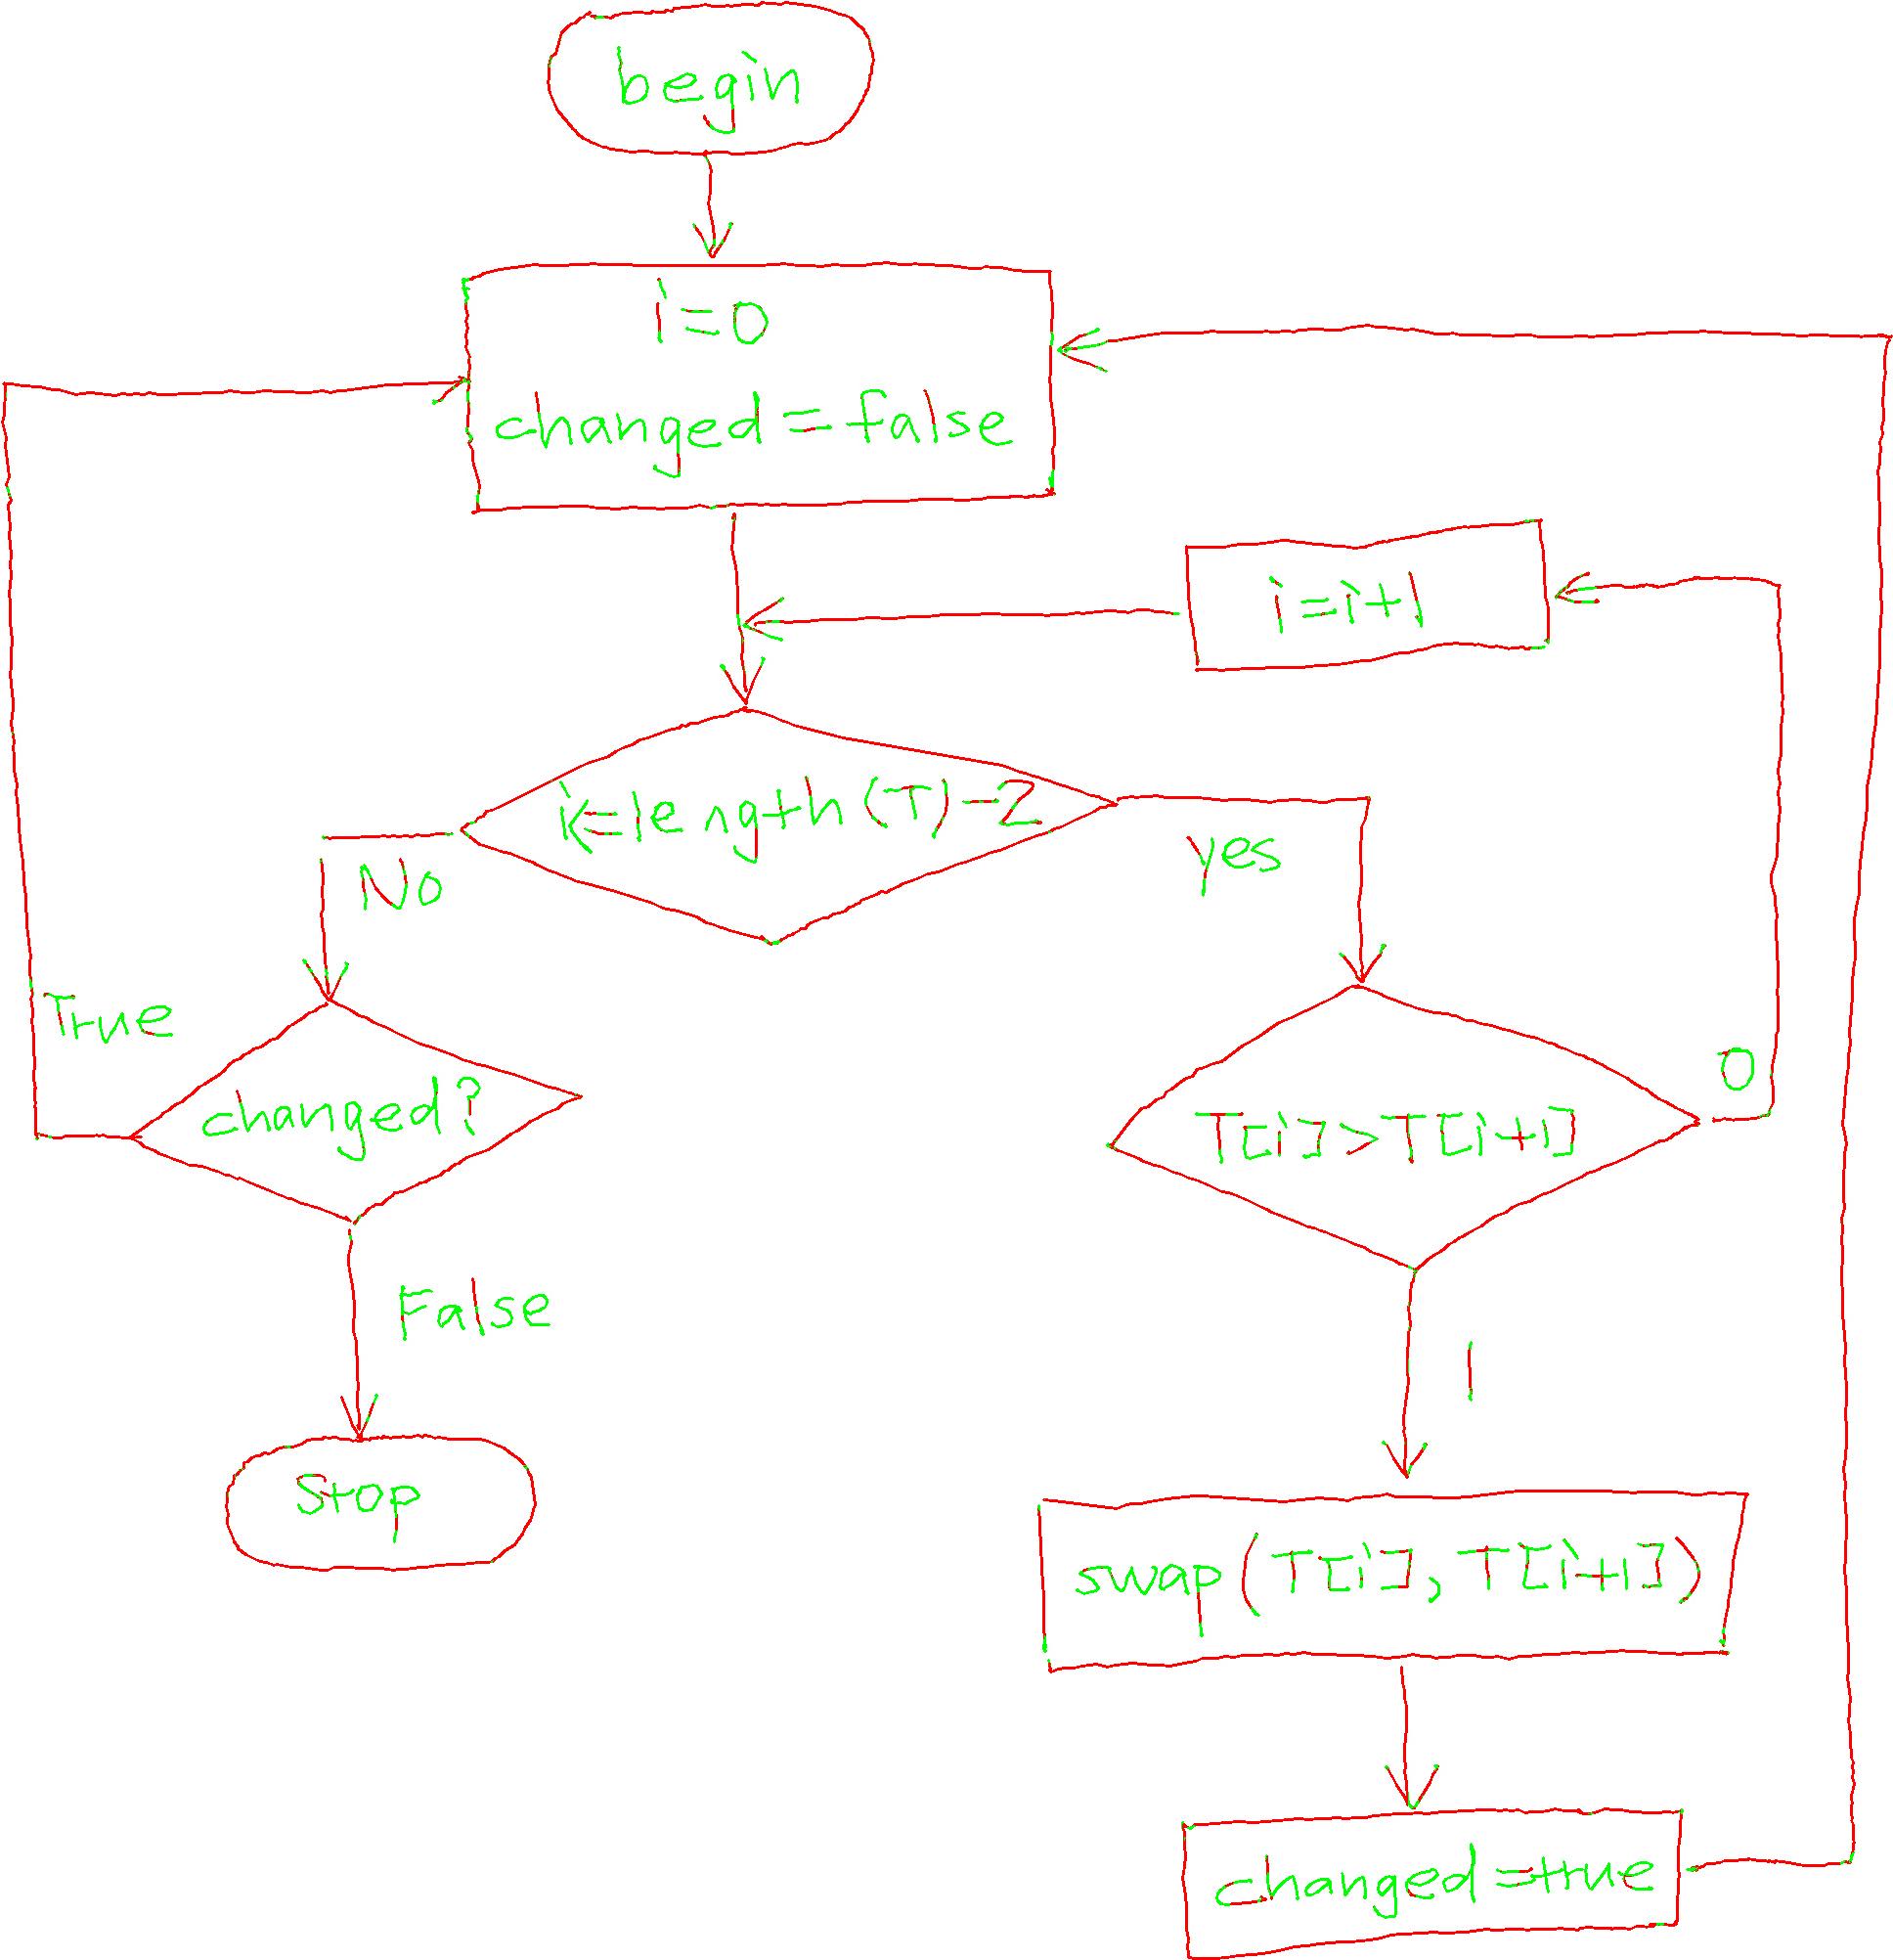 begin
i=0
changed=false
i=i+1
i<=length(T)-2
No
yes
True
changed?
T[i]>T[i+1]
0
False
1
Stop
swap(T[i], T[i+1])
changed=true